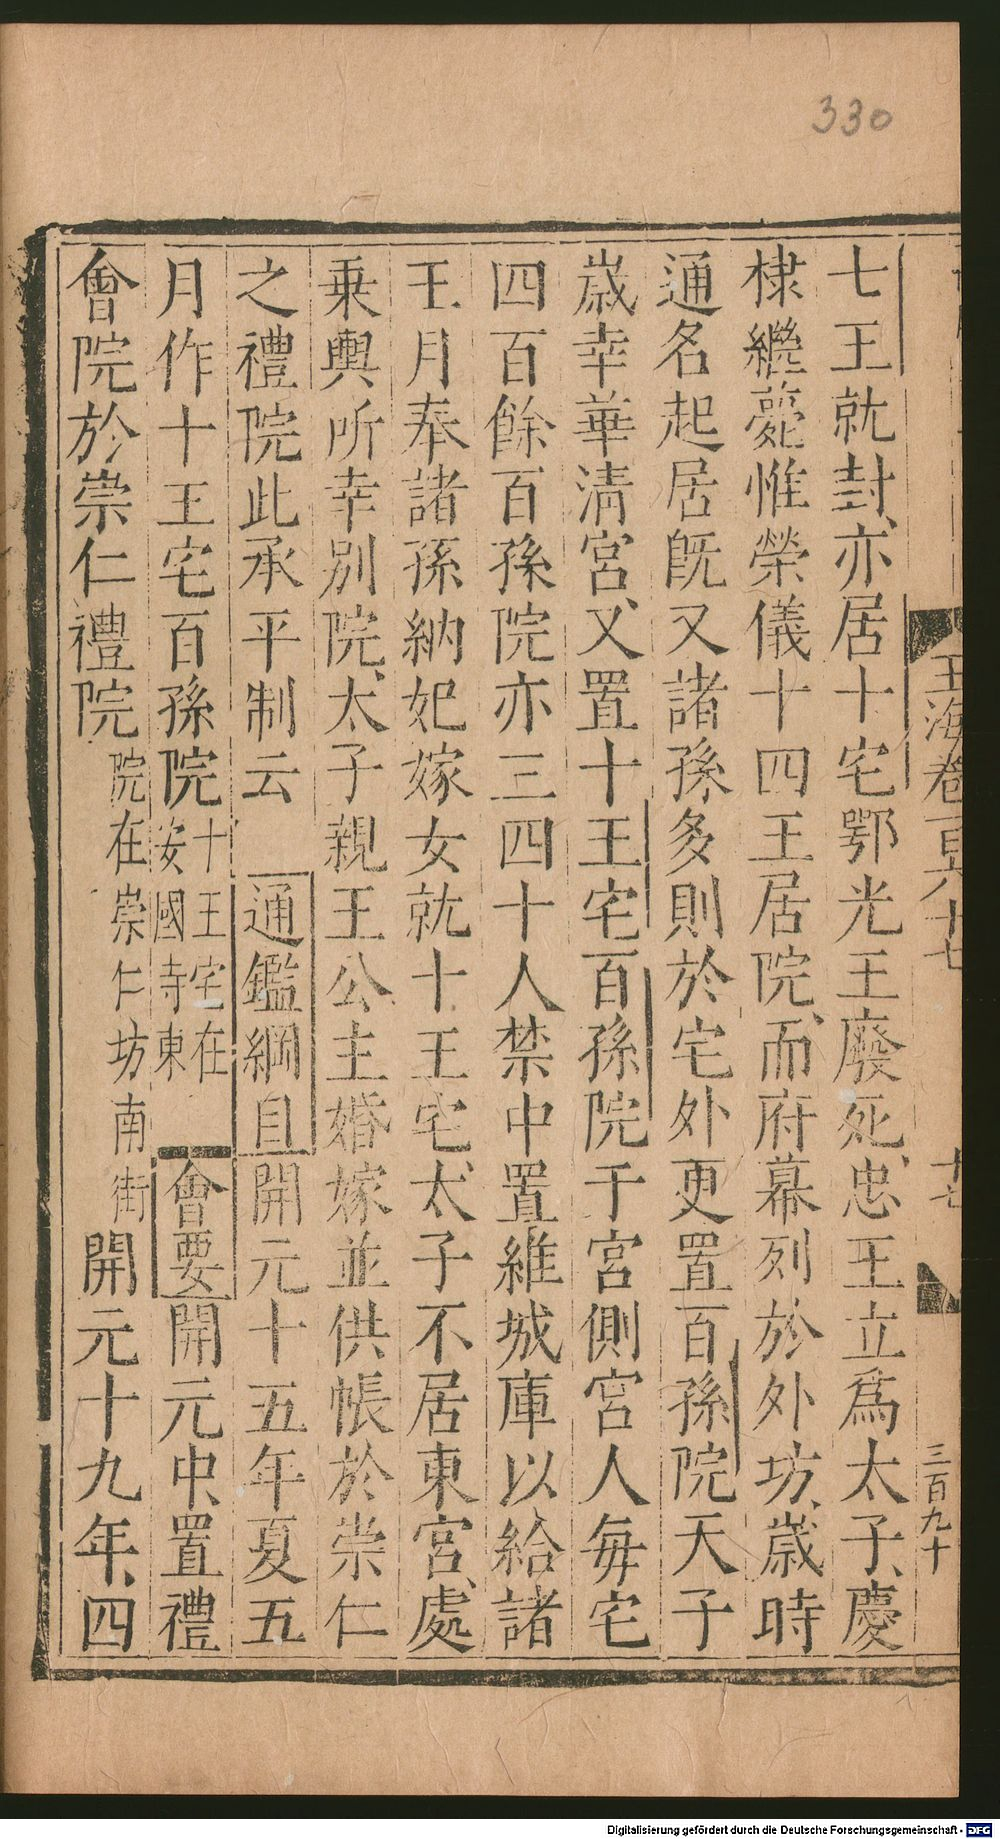 330
玉海卷百六十七
十七
三百九十
七王就封亦居十宅鄂光王廢死忠王立為太子慶
棣繼薨惟榮儀十四王居院而府幕列於外坊歲時
通名起居旣又諸孫多則於宅外更置百孫院天子
歲幸華清宮又置十王宅百孫院于宮側宮人每宅
四百餘百孫院亦三四十人禁中置維城庫以給諸
王月奉諸孫納妃嫁女就十王宅太子不居東宮處
乗輿所幸別院太子親王公主婚嫁並供帳於崇仁
之禮院此承平制云 通鑑綱目開元十五年夏五
月作十王宅百孫院十王宅在安國寺東 會要開元中置禮
會院於崇仁禮院院在崇仁坊南街開元十九年四
Digitalisierung gefördert durch die Deutsche Forschungsgemeinschaft - DFG